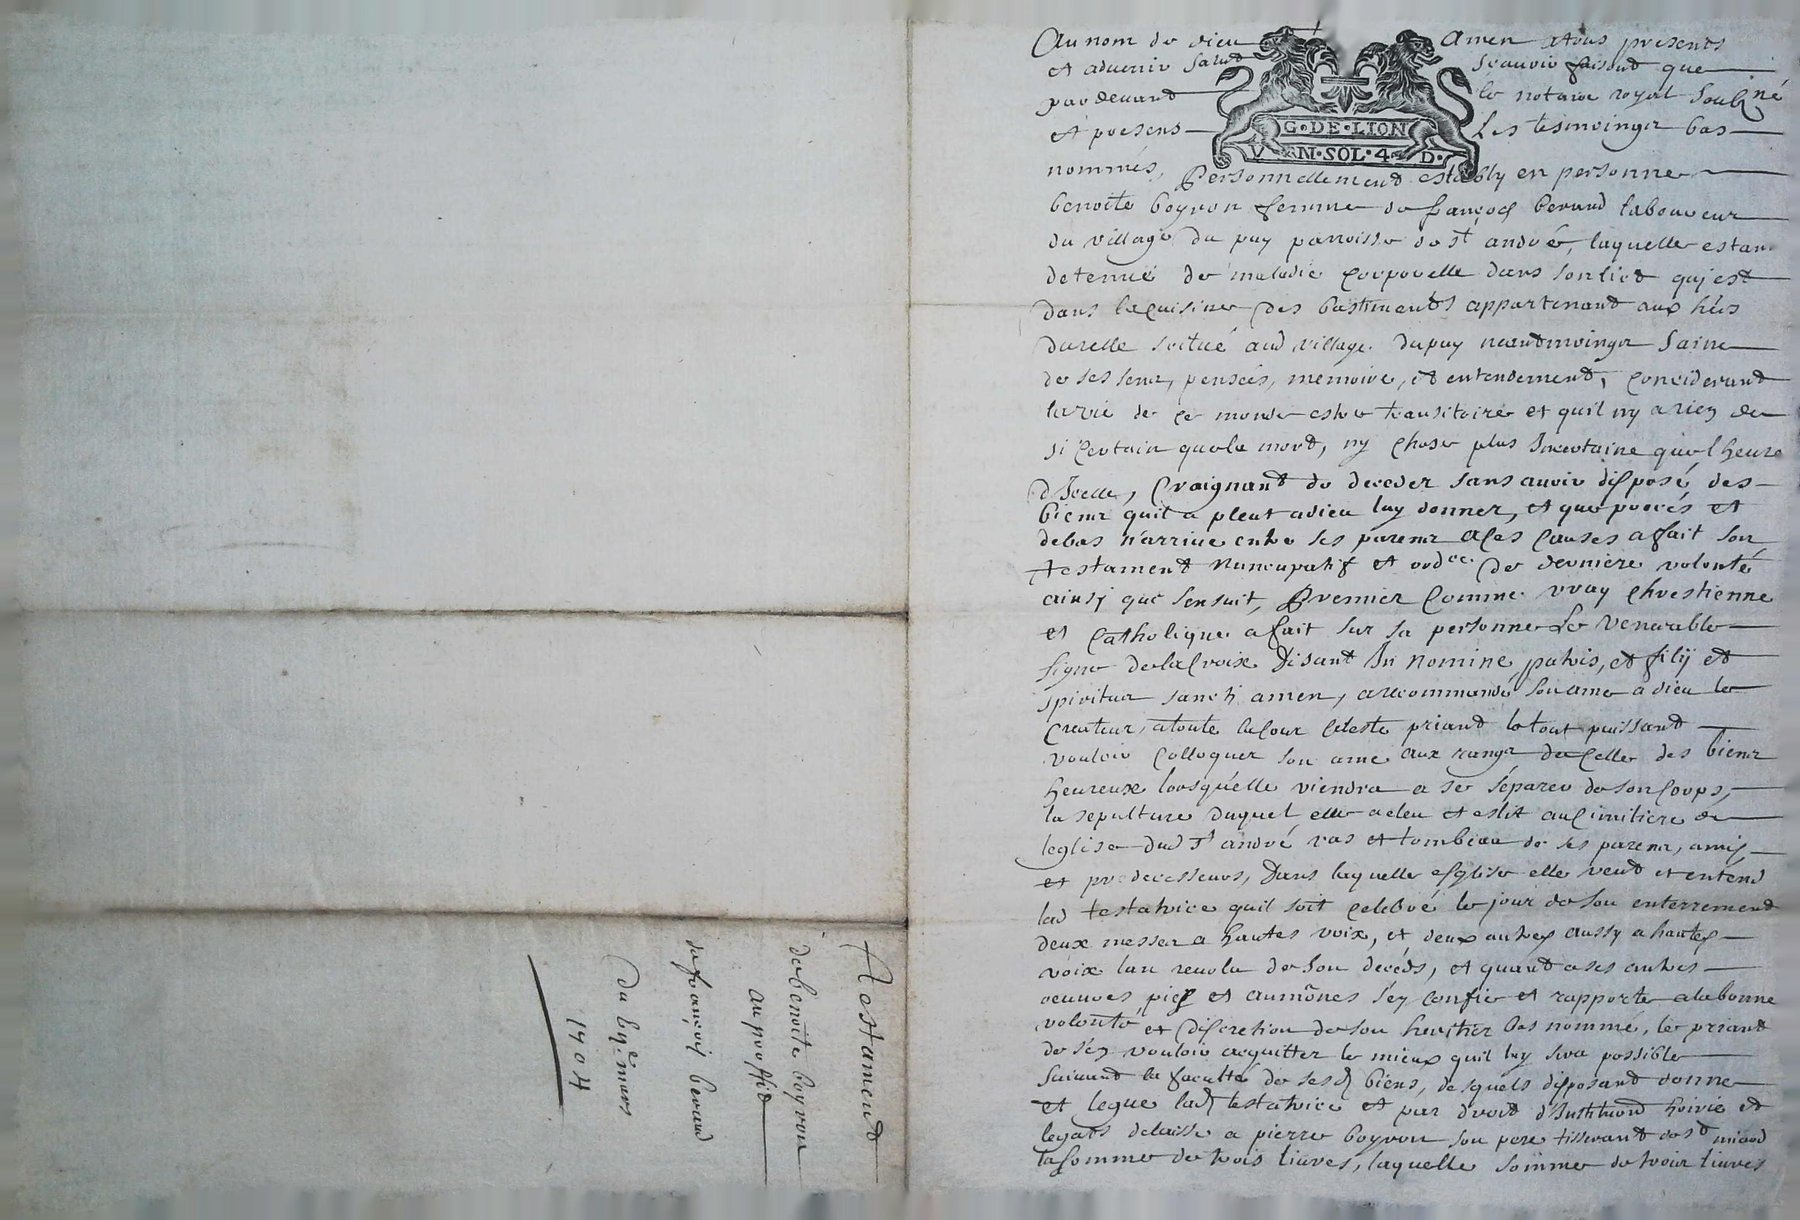 Au nom de dieu Amen atous presents
et aduenir salut scauoir faisont que
par deuant le notaire royal soubz né
et presens les tesmoingz bas
G·DE·LION
VN·SOL·4·D·
nommés, Personnellement establly en personne
benoite boyron femme de françois beraud laboureur
du village du puy parroisse de st andré, laquelle estan
detenue de maladie corporelle dans son lict qui est
dans la cuisine des bastiments appartenant aux hers
durelle scitué aud village dupuy neantmoingz saine
de ses sens, pensées, memoire, et entendement, considerant
la vie de ce monde estre transitoire et quil ny a rien de
si certain que la mort, ny chose plus Incertaine que lheure
dIcelle, Craignant de deceder sans auoir disposé des
biens quil a pleut a dieu luy donner, et que procés et
debas n'arriue entre ses parens a ces causes a fait son
testament nuncupatif et ordce de derniere volonté
ainsy que sensuit, Premier comme vray chrestienne
et catholique a fait sur sa personne Le venerable
signe de la Croix disant In nomine patris, et filij et
spiritus sancti amen, a recommandé son ame a dieu le
createur, a toute la cour celeste priant le tout puissant
vouloir colloquer son ame aux rangs de celle des biens
heureux lorsquélle viendra a se séparer de son corps,
la sepulture duquel elle a eleu et eslit au cimitiere de
leglise dud st andré vas et tombeau de ses parens, amis
et predecesseurs, Dans laquelle esglise elle veut et entend
lad testatrice quil soit celebré le jour de son enterrement
deux messes a hautes voix, et deux autres aussy a hautes
voix lan reuolu de son decéds, et quant a ses autres
oeuures pies et aumônes s'ey confie et rapporte a la bonne
volonté et discretion de son heritier bas nommé, le priant
de s'en vouloir acquitter le mieux quil luy sera possible
suiuant la faculté de sesd biens, desquels disposant donne
et legue lad testatrice et par droit d'Institution hoirie et
legats delaisse a pierre boyron son pere tisserant de st
la somme de trois liures, laquelle somme de trois liures
Testament
de benoite boyron
au proffit
de françois beraud
du mars
1704